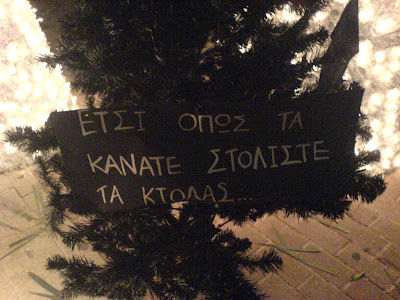 ΕΤΣΙ ΟΠΩΣ ΤΑ
ΚΑΝΑΤΕ ΣΤΟΛΙΣΤΕ
ΤΑ ΚΤΟΛΑΣ...